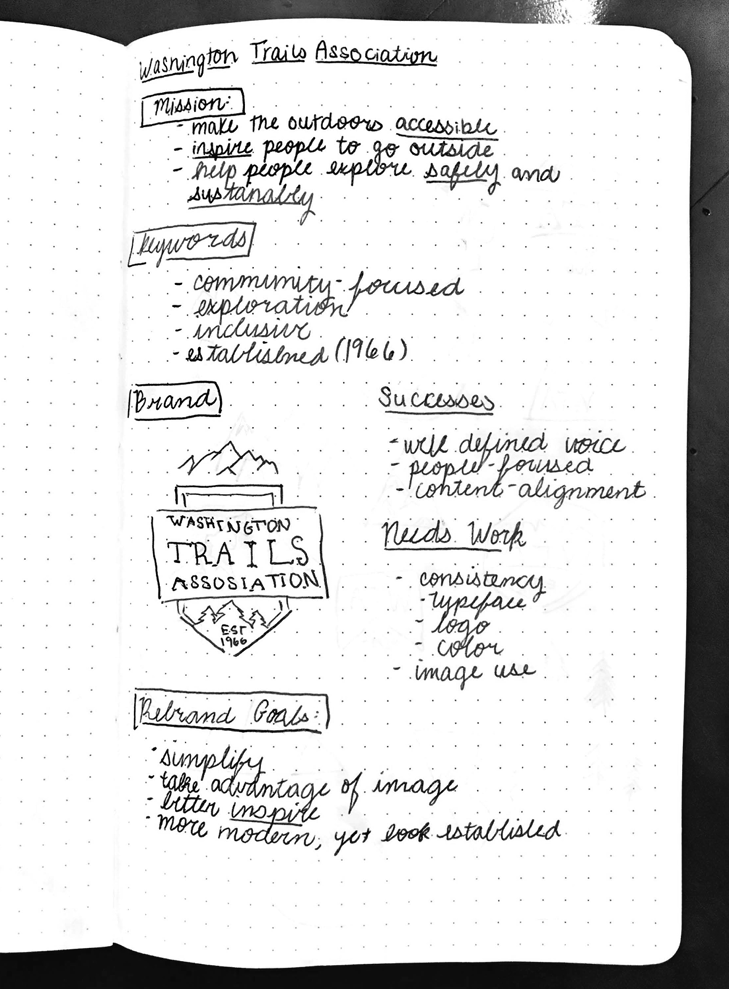 Washington Trails Association
Mission:
- make the outdoors accessible
- inspire people to go outside
- help people explore safely and
sustanably
Keywords
- community-focused
- exploration
- inclusive
- established (1966)
Brand
WASHINGTON
TRAILS
ASSOSIATION
EST
1966
Successes
- well defined voice
- people-focused
- content-alignment
Needs Work
- consistency
- typeface
- logo
- color
- image use
Rebrand Goals:
- simplify
- take advantage of image
- better inspire
- more modern, yet look established